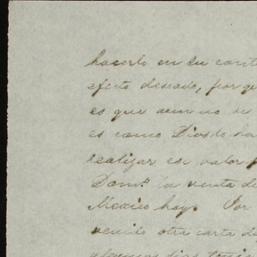 hacerlo en su cont
efecto deseado, porqu
es que aun no se
es como Dios le da
realizar su valor p
Domo. la venta de
Mexico hoy. Por
venido otra carta de
algunos dias